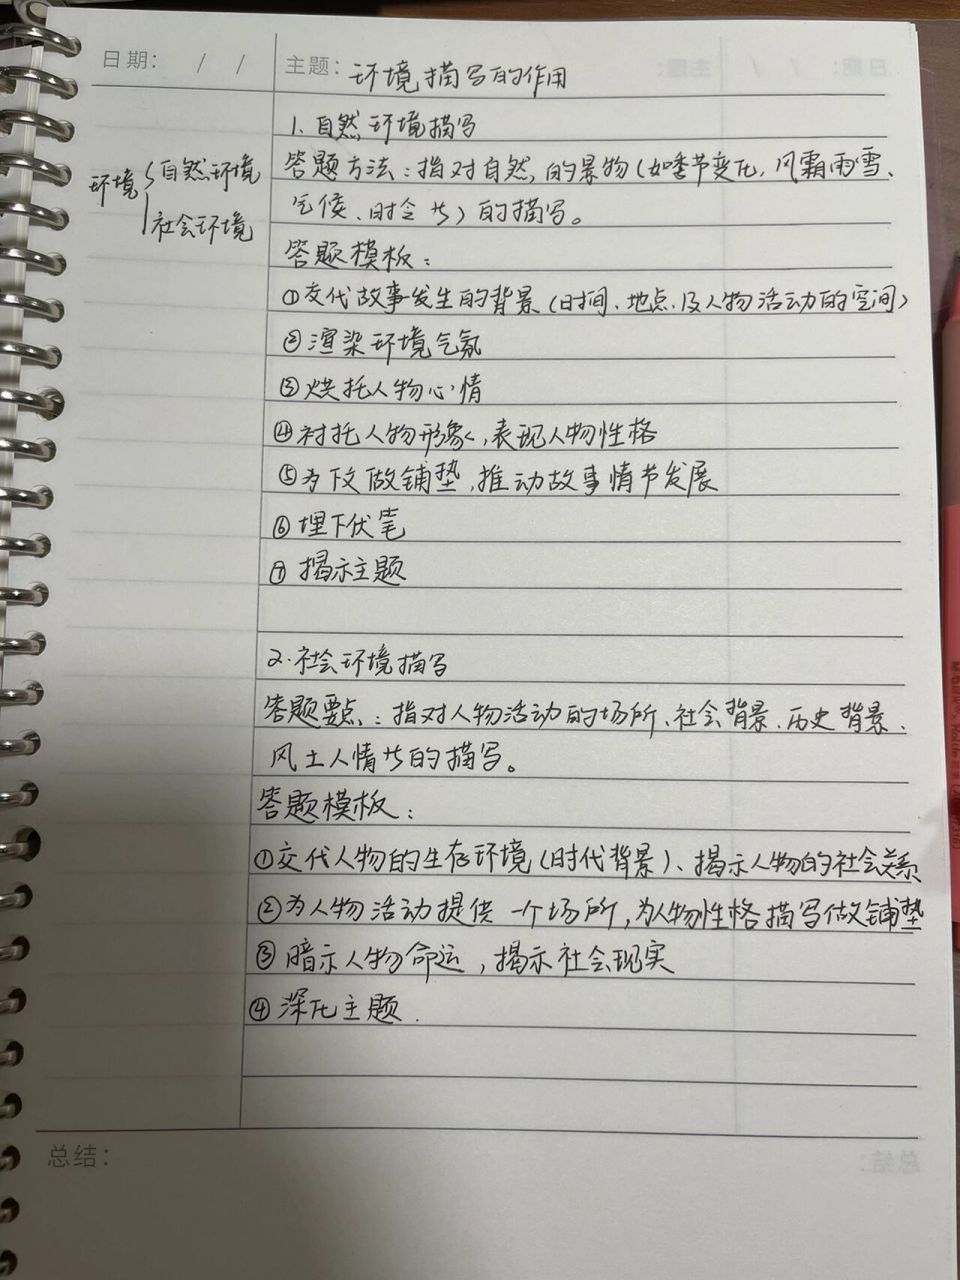 日期： / / 主题：环境描写的作用
环境
自然环境
社会环境
1.自然环境描写
答题方法：指对自然的景物(如季节变化,风霜雨雪、
气侯、时令等)的描写。
答题模板：
①交代故事发生的背景(时间、地点、及人物活动的空间)
②渲染环境气氛
③烘托人物心情
④衬托人物形象,表现人物性格
⑤为下文做铺垫,推动故事情节发展
⑥埋下伏笔
⑦揭示主题
2.社会环境描写
答题要点：指对人物活动的场所、社会背景、历史背景、
风土人情等的描写。
答题模板：
①交代人物的生存环境(时代背景)、揭示人物的社会关系
②为人物活动提供一个场所,为人物性格描写做铺垫
③暗示人物命运,揭示社会现实
④深化主题.
总结：